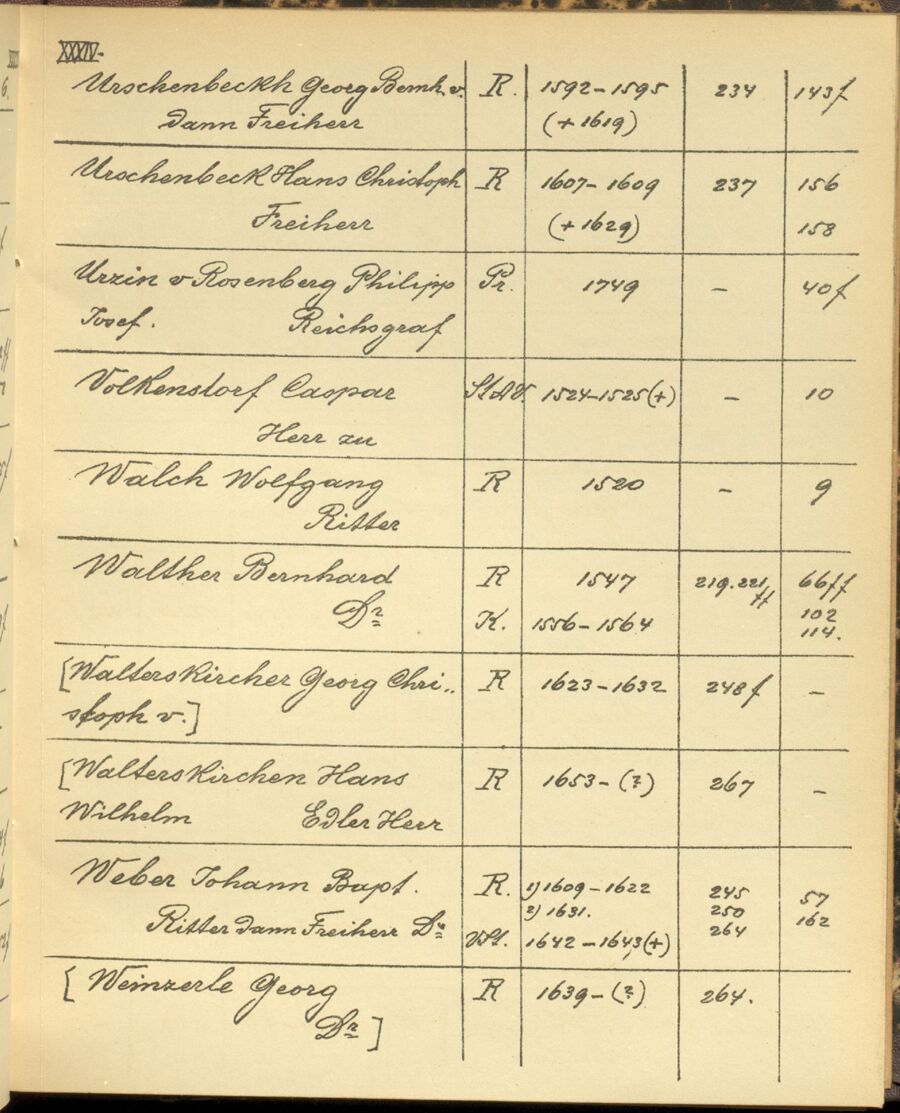 XXXIV.
Urschenbeckh Georg Bernh. v. R. 1592–1595 234 143f
dann Freiherr (+1619)
Urschenbeck Hans Christoph R 1607–1609 237 156
Freiherr (+1629) 158
Urzin v Rosenberg Philipp Pr. 1749 – 40f
Josef. Reichsgraf
Volkenstorf Caspar St.A.V. 1524–1525(+) – 10
Herr zu
Walch Wolfgang R 1520 – 9
Ritter
Walther Bernhard R 1547 219.221/ff 66ff
Dr K. 1556–1564 102
114.
[Walterskircher Georg Chri.. R 1623–1632 248f –
stoph v.]
[Walterskirchen Hans R 1653–(?) 267 –
Wilhelm Edler Herr
Weber Johann Bapt. R. 1) 1609–1622 245 57
2) 1631. 250 162
Ritter dann Freiherr Dr VSt. 1642–1643(+) 264
[Weinzerle Georg R 1639–(?) 264.
Dr]